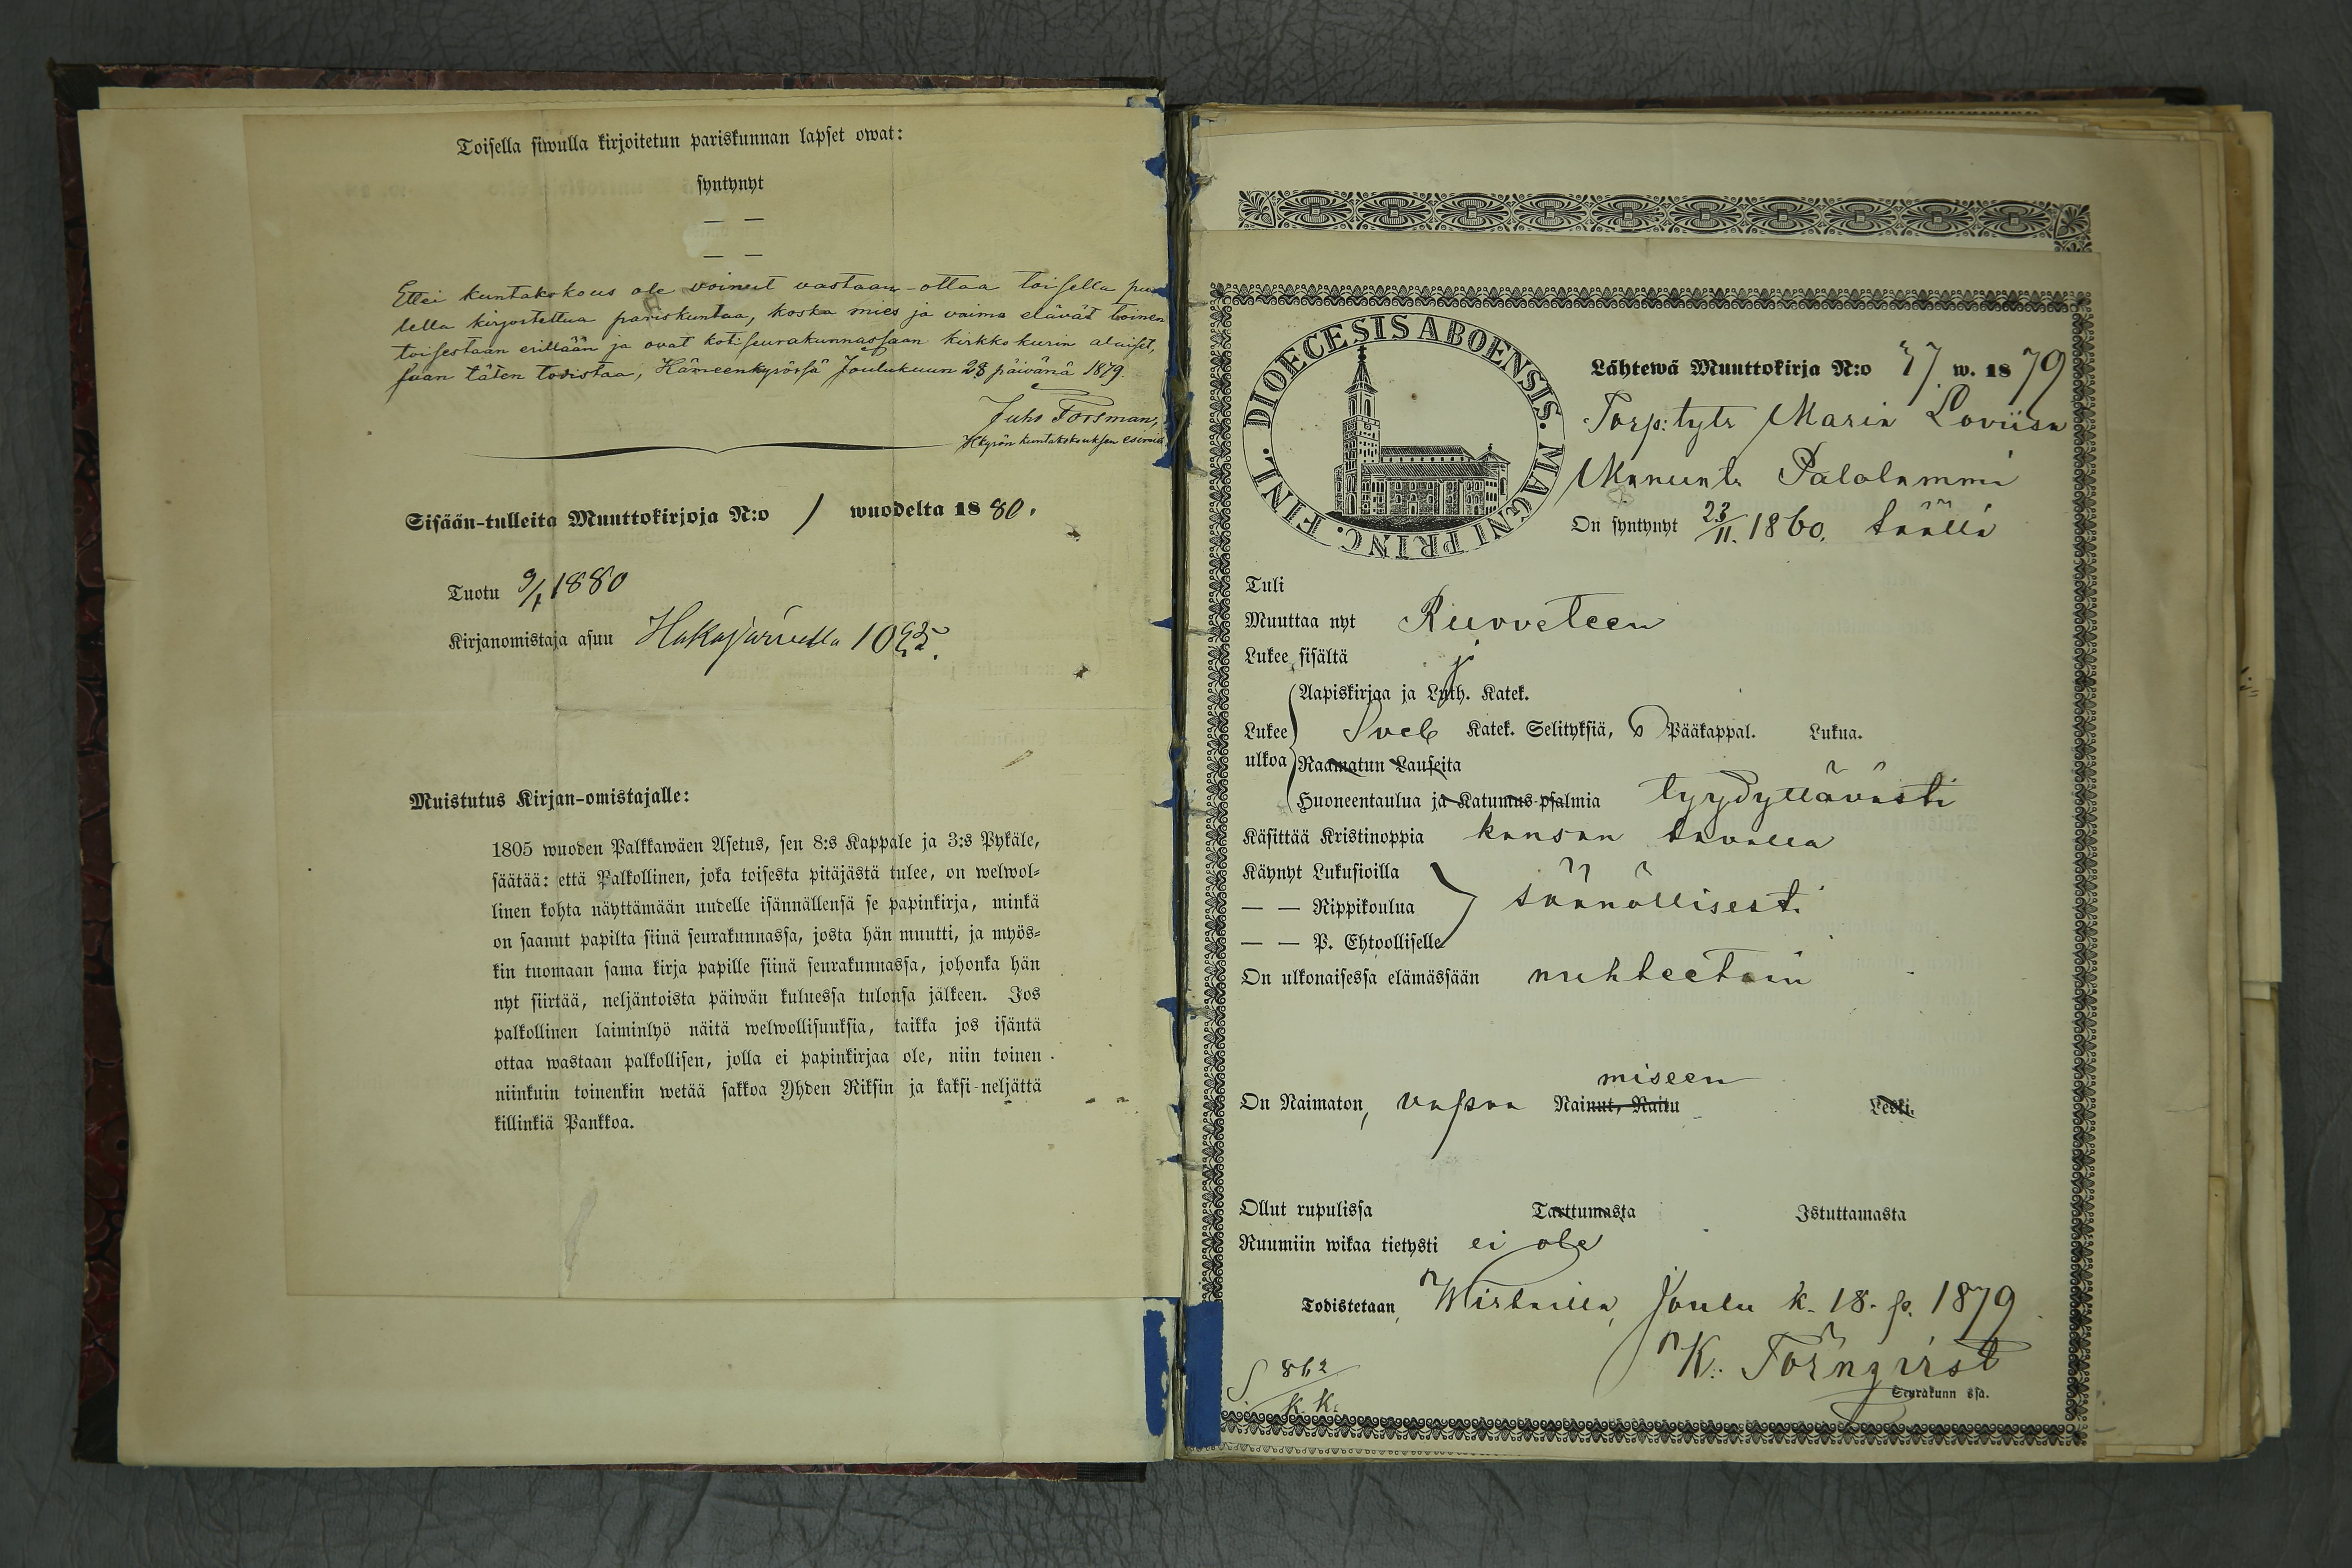 Toisella siwulla kirjoitetun pariskunnan lapset owat:
syntynyt
— —
— —
Ettei kuntakokous ole voinut vastaan-ottaa toisella puo
lella kirjoitettua pariskuntaa, koska mies ja vaimo elävät toinen
toisestaan erillään ja ovat kotiseurakunnassaan kirkkokurin alaiset,
saan täten todistaa, Hämeenkyrössä Joulukuun 28 päivänä 1879.
Juho Forsman,
Hkyrön kuntakokouksen esimies
Sisään-tulleita Muuttokirjoja N:o 1 wuodelta 1880.
Tuotu 9/1 1880
Kirjanomistaja asuu
Muistutus Kirjan-omistajalle:
1805 wuoden Palkkawäen Asetus, sen 8:s Kappale ja 3:s Pykäle,
säätää: että Palkollinen, joka toisesta pitäjästä tulee, on welwol-
linen kohta näyttämään uudelle isännällensä se papinkirja, minkä
on saanut papilta siinä seurakunnassa, josta hän muutti, ja myös-
kin tuomaan sama kirja papille siinä seurakunnassa, johonka hän
nyt siirtää, neljäntoista päiwän kuluessa tulonsa jälkeen. Jos
palkollinen laiminlyö näitä welwollisuuksia, taikka jos isäntä
ottaa wastaan palkollisen, jolla ei papinkirjaa ole, niin toinen
niinkuin toinenkin wetää sakkoa Yhden Riksin ja kaksi-neljättä
killinkiä Pankkoa.
DIOECESIS ABOENSIS. MAGNI PRINC. FINL.
Lähtewä Muuttokirja N:o 37. w. 1879
Torp: tytr Maria Loviisa
Manuunt. Palolammi
On syntynyt 23/11. 1860. täällä
Tuli
Muuttaa nyt Ruoveteen
Lukee sisältä
Aapiskirjaa ja Luth. Katek.
Lukee Sveb Katek. Selityksiä, 6 Pääkappal. Lukua.
ulkoa Raamatun Lauseita
Huoneentaulua ja Katumus-psalmia tyydyttävästi
Käsittää Kristinoppia kansan tavalla
Käynyt Lukusioilla
— — Rippikoulua säännöllisesti
— — P. Ehtoolliselle
On ulkonaisessa elämässään nuhteetoin
miseen
On Naimaton, vapaa Nainut, Naitu Leski.
Ollut rupulissa Tarttumasta Istuttamasta
Ruumiin wikaa tietysti ei ole
Todistetaan, Wirtailla, Joulu k. 18. p. 1879
K. Törnqvist
Seurakunn ssa.
S 862
K. K.